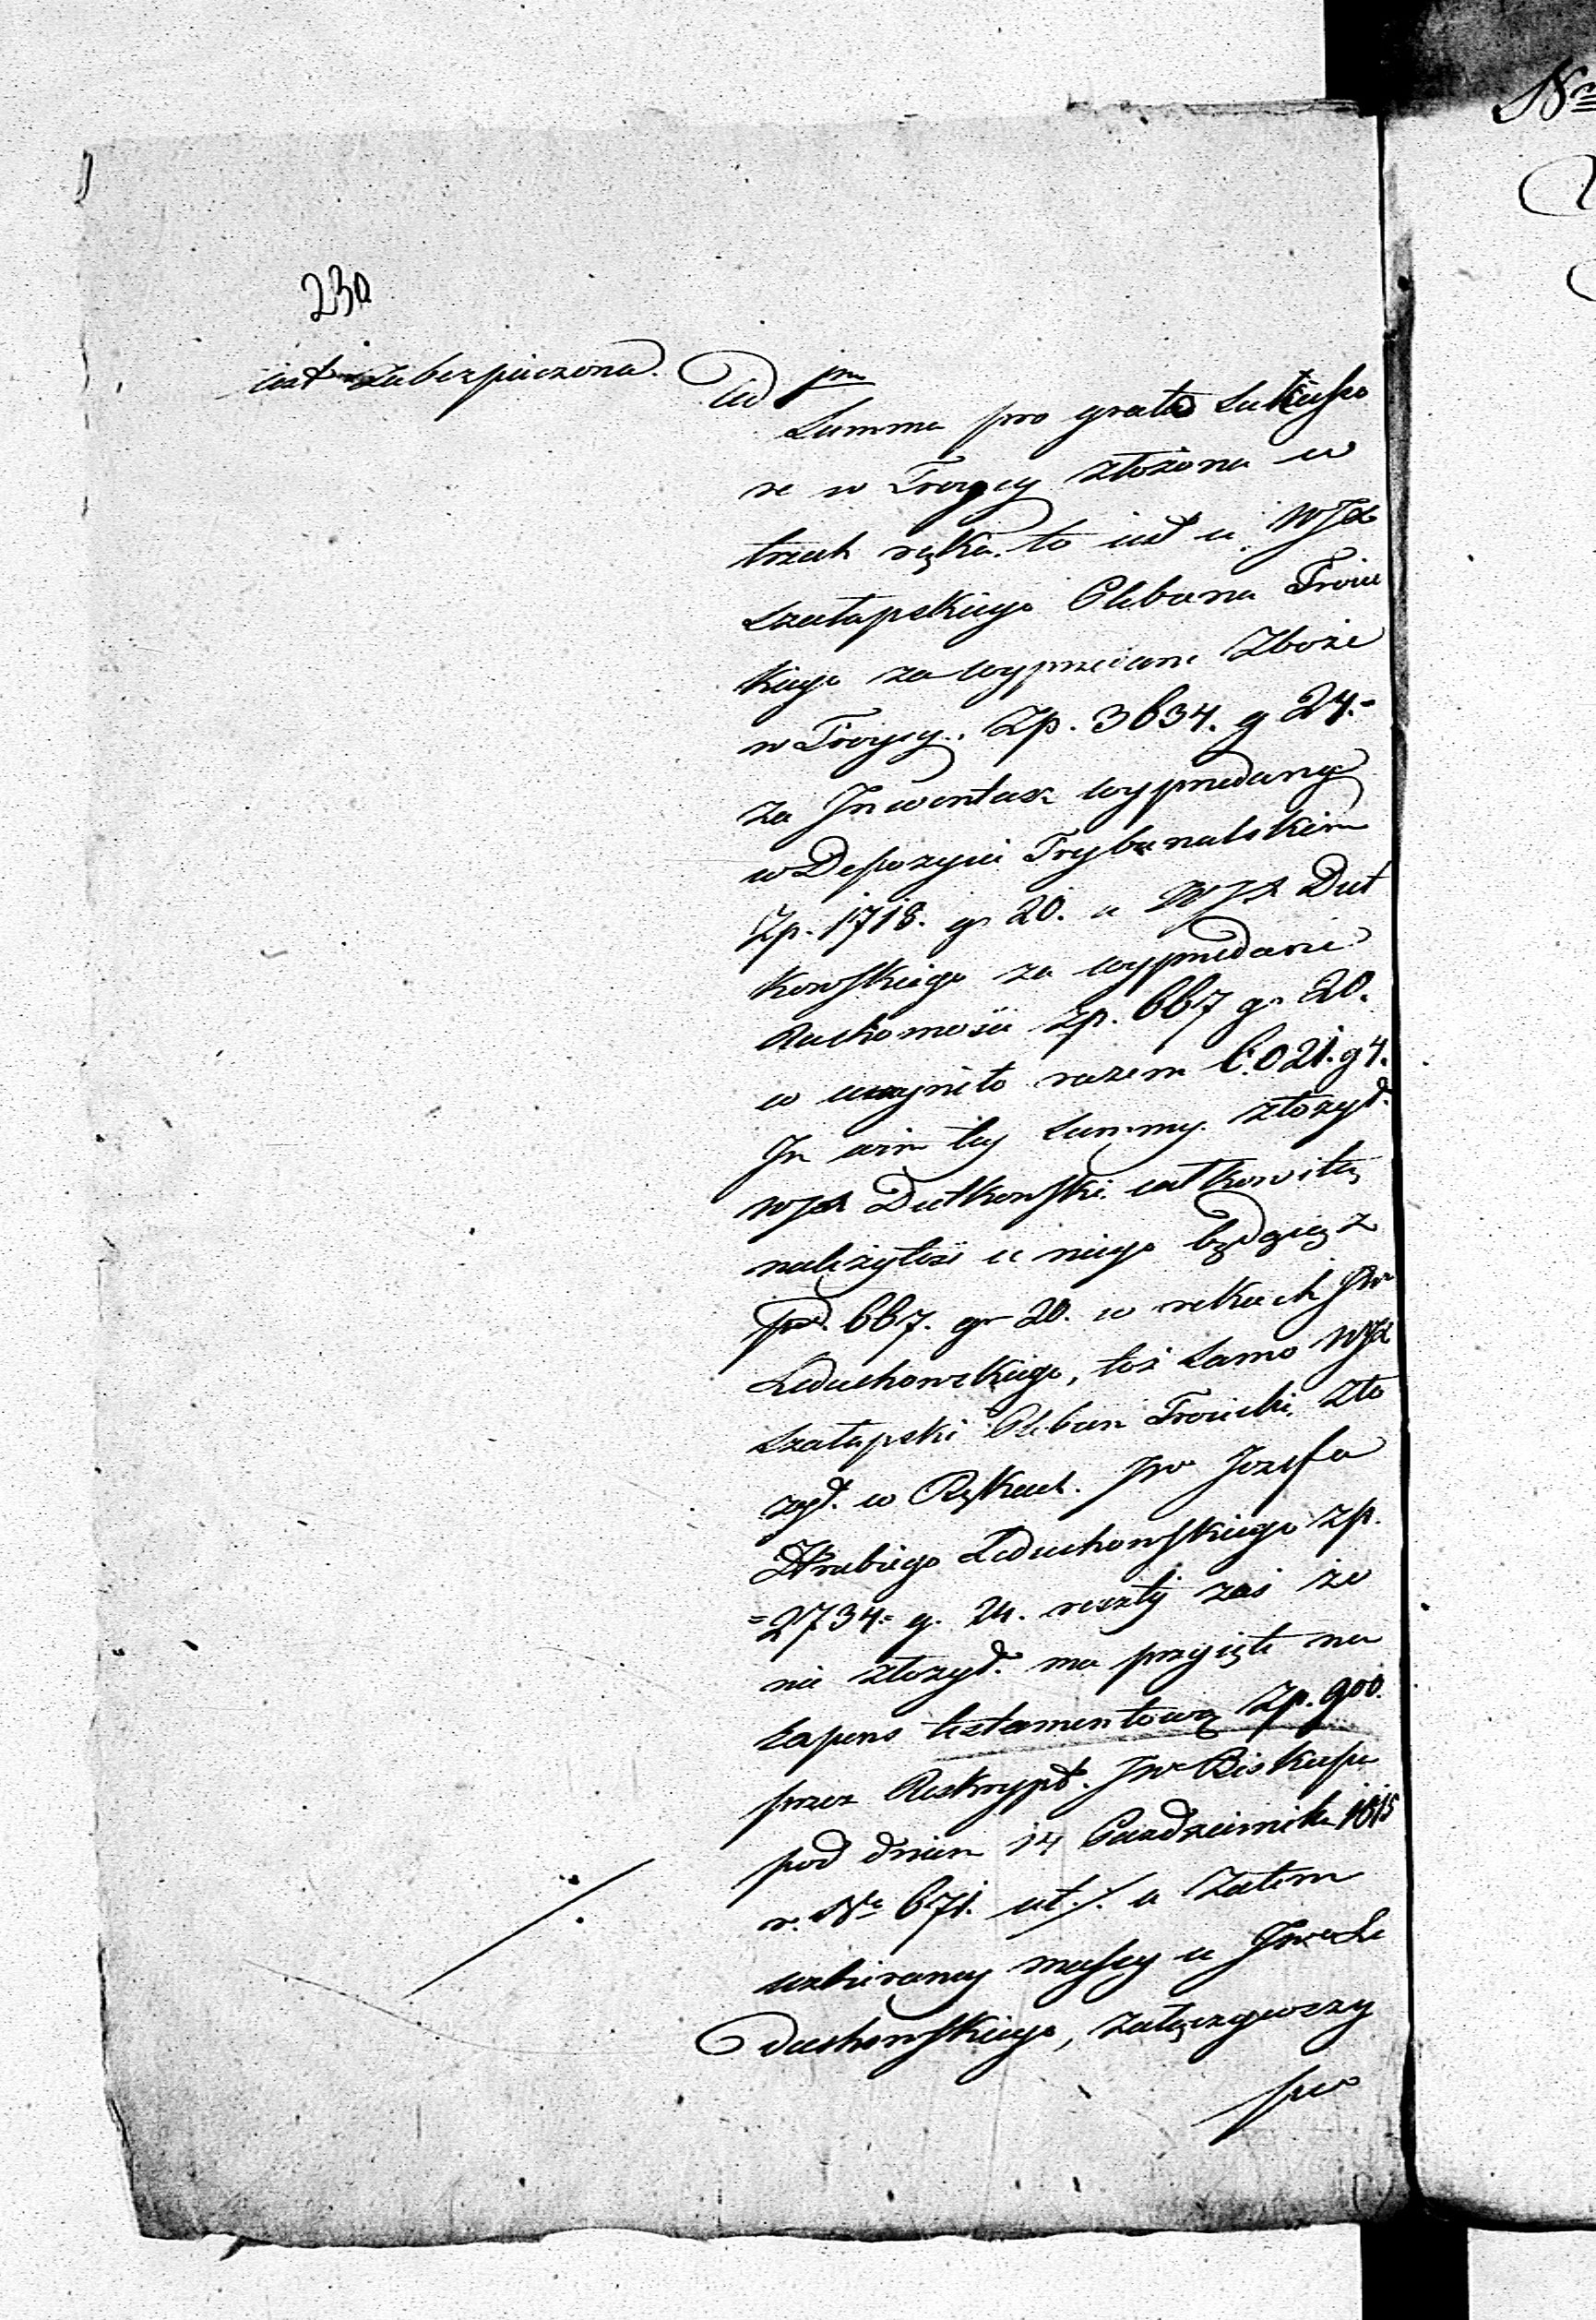 230
iest zabezpieczona.
Ad 1mo
Summa pro grato
w Troycy złożona w
trzech ręku. to iest u WJX
Szałapskiego Plebana Troic
kiego za wyprzedane Zboże
w Troycy. Zp. 3634. g 24.-
za Inwentarz wyprzedany
w Depozycie Trybunalskim
Zp. 1718. gr 20. u WJX Dut
kowskiego za wyprzedane
Ruchomości Zp. 667 gr 20.
co uczyniło razem 6.021. g 4.
tey Summy. złożył.
WJX Dutkowski całkowitą
należytość u niego będącą z
667. gr 20. w rękach JW
Leduchowskiego, toż samo WJX
Szałapski Pleban Troicki zło
żył. w Rękach. JW Jozefa
Hrabiego Leduchowskiego zp.
=2734= g. 24. reszty zaś że
nie złożył. ma przyięte na
expens testamentową Zp. 900.
przez Reskrypt. JW Biskupa
pod dniem 14 Pazdziernika 1815
r. No 671. a zatem
uzbieraney massy u JW Le
duchowskiego, załączywszy